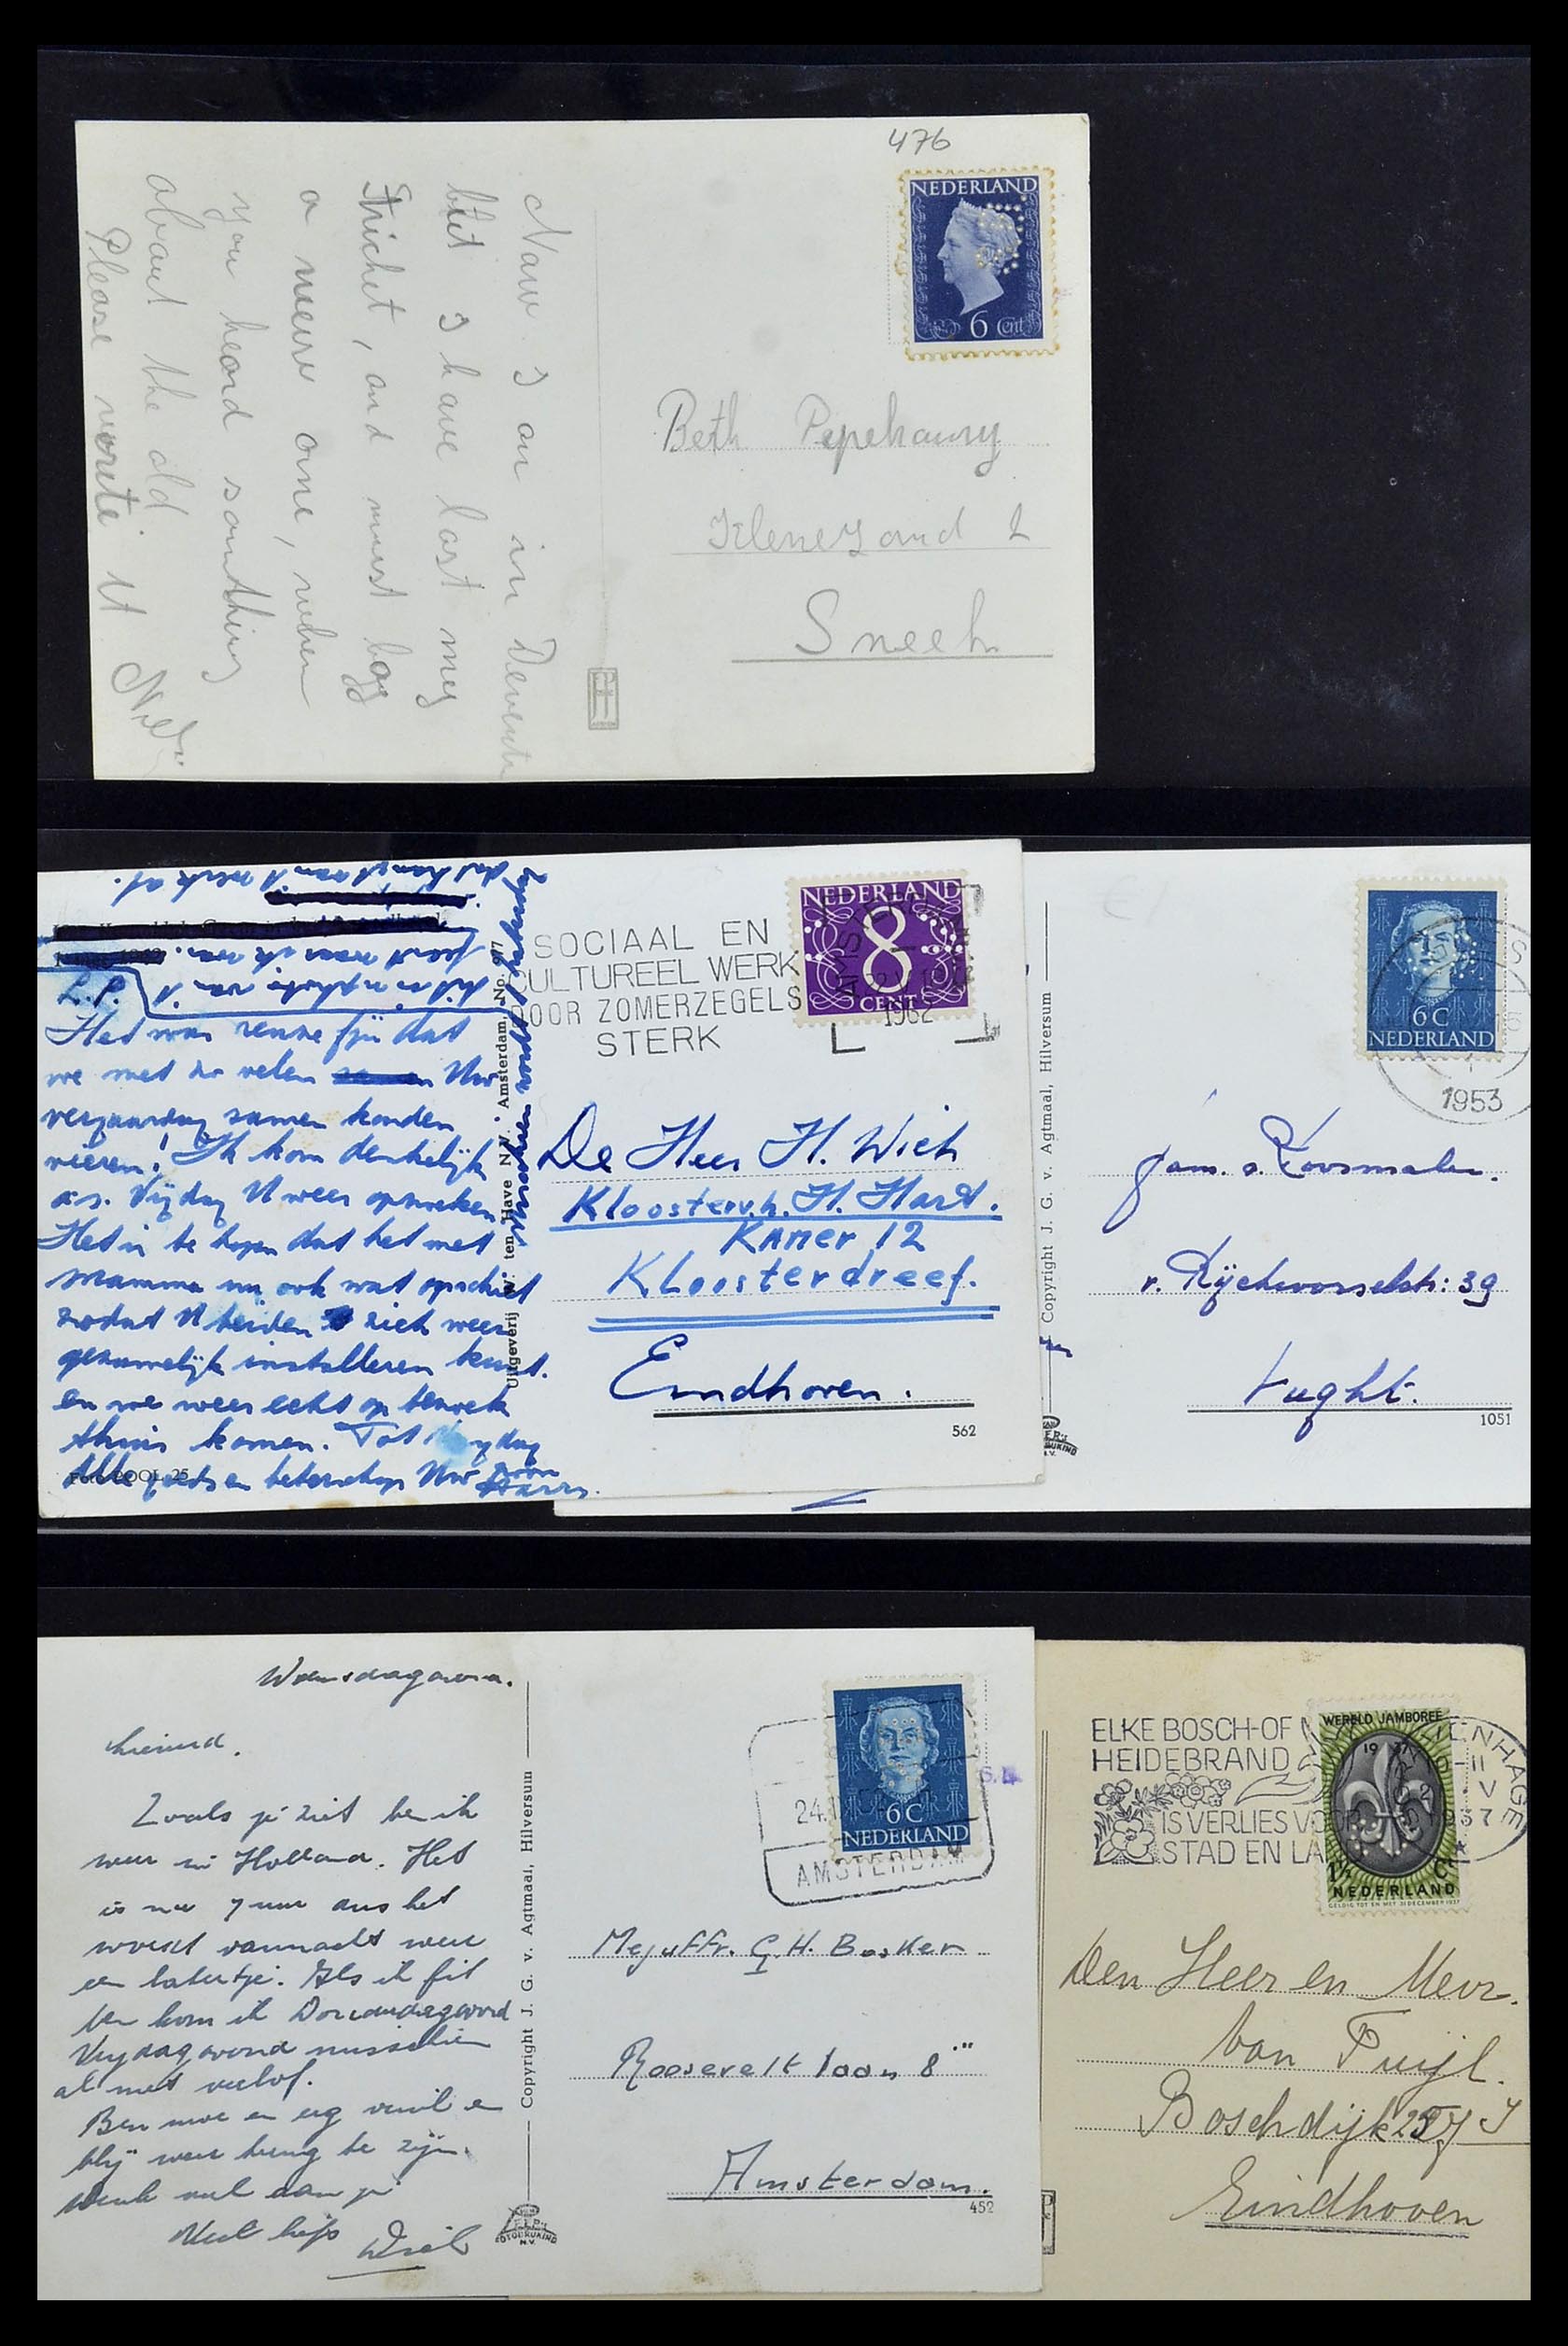 476
NEDERLAND
6 cent
Beth Pepehamy
Kleine Zand 2
Sneek
Now I am in Devente
but I have lost my
Tricht, and must bay
a neuw one, when
you heard somthing
about the old
Please wrete it
SOCIAAL EN
CULTUREEL WERK
DOOR ZOMERZEGELS
STERK
NEDERLAND
8
CENT
1962
Het was reuze fijn dat
we met zo velen Uw
verjaardag samen konden
vieren! Ik kom denkelijk
a.s. Vrijdag U weer opzoeken
Het is te hopen dat het met
mamma nu ook wat opschiet
zodat U beiden zich weer
gezamelijk installeren kunt.
en we weer echt op bezoek
thuis komen. Tot Vrijdag
Alle goeds en beterschap Uw zoon
Harry
Foto POOL 25
Uitgeverij ten Have N.V. Amsterdam, No. 977
De Heer H. Wich
Klooster v.h. H. Hart.
Kamer 12
Kloosterdreef.
Eindhoven.
562
NEDERLAND
6 C
1953
Copyright J. G. v. Agtmaal, Hilversum
Fam. v. Roosmalen.
v. Rijckevorselstr: 39
Vught.
1051
Woensdagavond.
Lieverd,
Zoals je ziet ben ik
weer in Holland. Het
is nu 7 uur dus het
wordt vannacht weer
een latertje. Als ik fit
ben kom ik Donderdagavond
Vrijdagavond misschien
al met verlof.
Ben moe en erg vuil en
blij weer terug te zijn.
Denk veel aan je
Veel liefs
Copyright J. G. v. Agtmaal, Hilversum
6 C
NEDERLAND
24.
AMSTERDAM
Mejuffr. G. H. Bosker
Rooseveltlaan 8'''
Amsterdam.
452
ELKE BOSCH-OF
HEIDEBRAND
IS VERLIES VOOR
STAD EN LA
WERELD JAMBOREE
19 37
1½ C
NEDERLAND
GELDIG TOT EN MET 31 DECEMBER 1937
1937
Den Heer en Mevr.
van Tuijl.
Boschdijk
Eindhoven